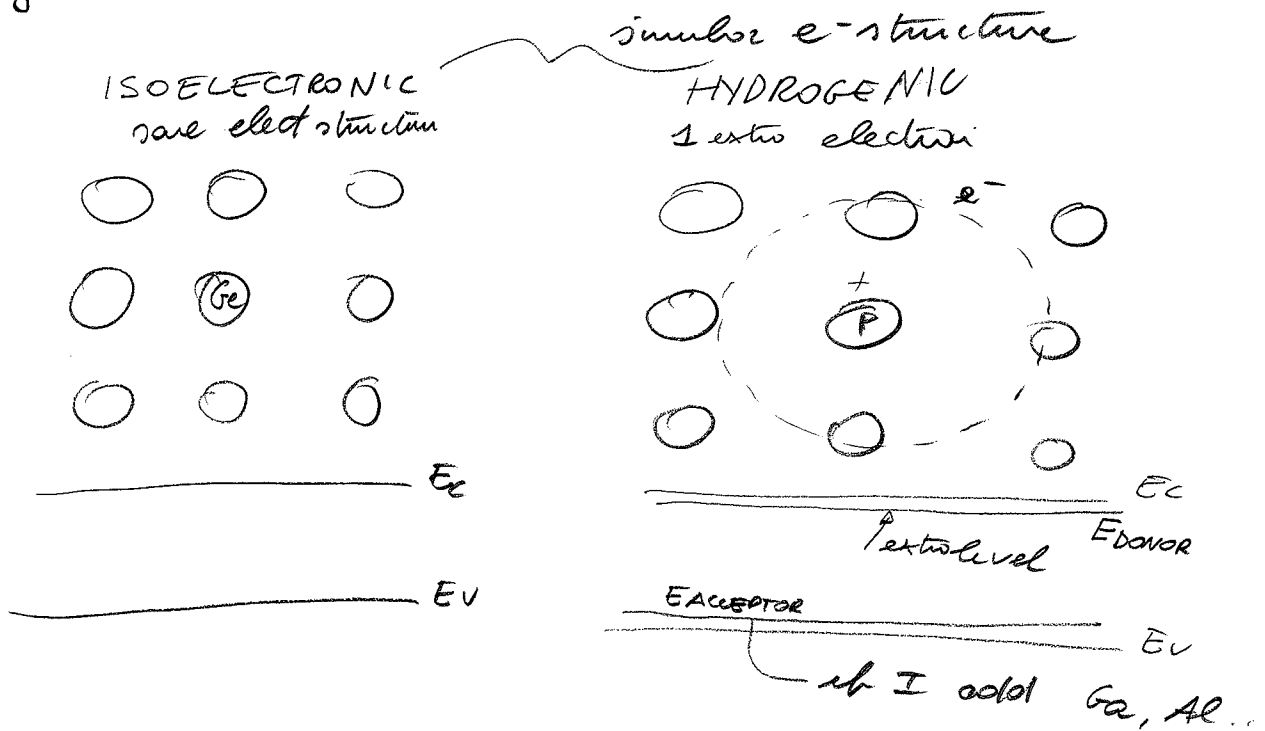 similar e- structure
ISOELECTRONIC
same elect structure
HYDROGENIC
1 extra electron
e-
Ge
+
P
Ec
Ec
EDONOR
extra level
EV
EACCEPTOR
Ev
if I add Ga, Al..